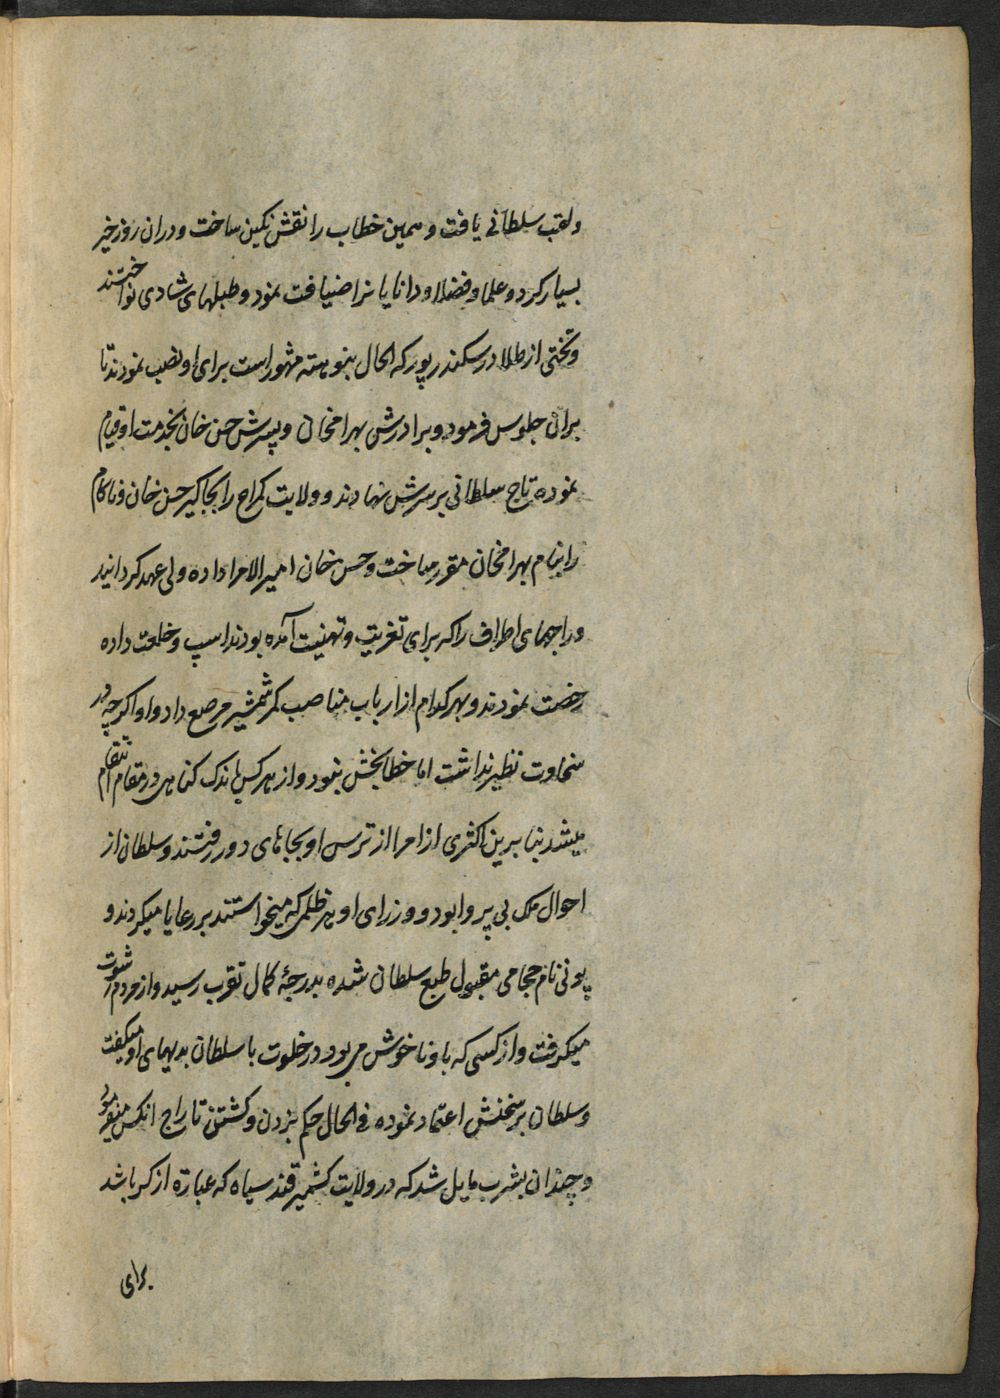 و لقب سلطانی یافت و همین خطاب را نقش نکین ساخت و دران روز خیر
بسیار کرد و علما و فضلا و دانایانرا ضیافت نمود و طبلهای شادی نواختند
و تختی از طلا در سکندرپور که الحال بنوهته مشهور است برای او نصب نمودند تا
بران جلوس فرمود و برادرش بهرامخان و پسرش حسن خان بخدمت او قیام
نموده تاج سلطانی بر سرش نهادند و ولایت کمراج را بجاکیر حسن خان و ناکام
را بنام بهرامخان مقرر ساخت و حسن خان امیر الامرا داده ولی عهد کردانید
و راجهای اطراف را که برای تعزیت و تهنیت آمده بودند اسپ و خلعت داده
رخصت نمودند و بهر کدام از ارباب مناصب کمر شمشیر مرصع داد و او اکر چه در
سخاوت نظیر نداشت اما خطابخش نبود و از هر کس باندک کناهی در مقام انتقام
میشد بنابرین اکثری از امرا از ترس او بجاهای دور رفتند و سلطان از
احوال ملک بی پروا بود و وزرای او هر ظلمی که میخواستند بر رعایا میکردند و
پونی نام حجامی مقبول طبع سلطان شده بدرجهٔ کمال تقرب رسید و از مردم رشوت
میکرفت و از کسی که باو ناخوش می بود در خلوت با سلطان بدیهای او میکفت
و سلطان بر سخنش اعتماد نموده فی الحال حکم بزدن و کشتن و تاراج انکس میفرمود
و چندان بشرب مایل شد که در ولایت کشمیر قند سیاه که عبارة از کر باشد
برای